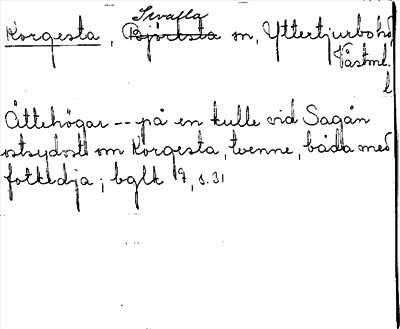 Sevalla
Korgesta, Björksta sn, Yttertjurbo hd
Västml.
Ättehögar -- på en kulle vid Sagån
ostsydost om Korgesta, tvenne, båda med
fotkedja; bglk 9, s. 31